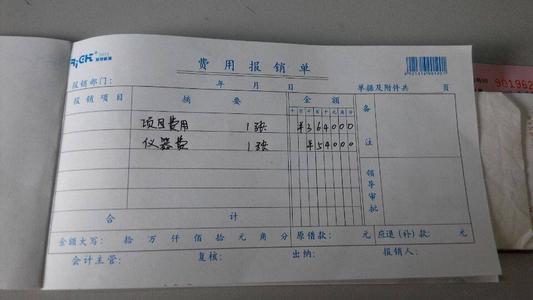 RICH
费用报销单
报销部门： 年 月 日 单据及附件共 页
报销项目 摘要 金额 备注
十万千百十元角分
项目费用 1张 ¥364000
仪器费 1张 ¥54000
领导审批
合计
金额大写： 拾 万 仟 佰 拾 元 角 分 原借款： 元 应退（补）款： 元
会计主管： 复核： 出纳： 报销人：